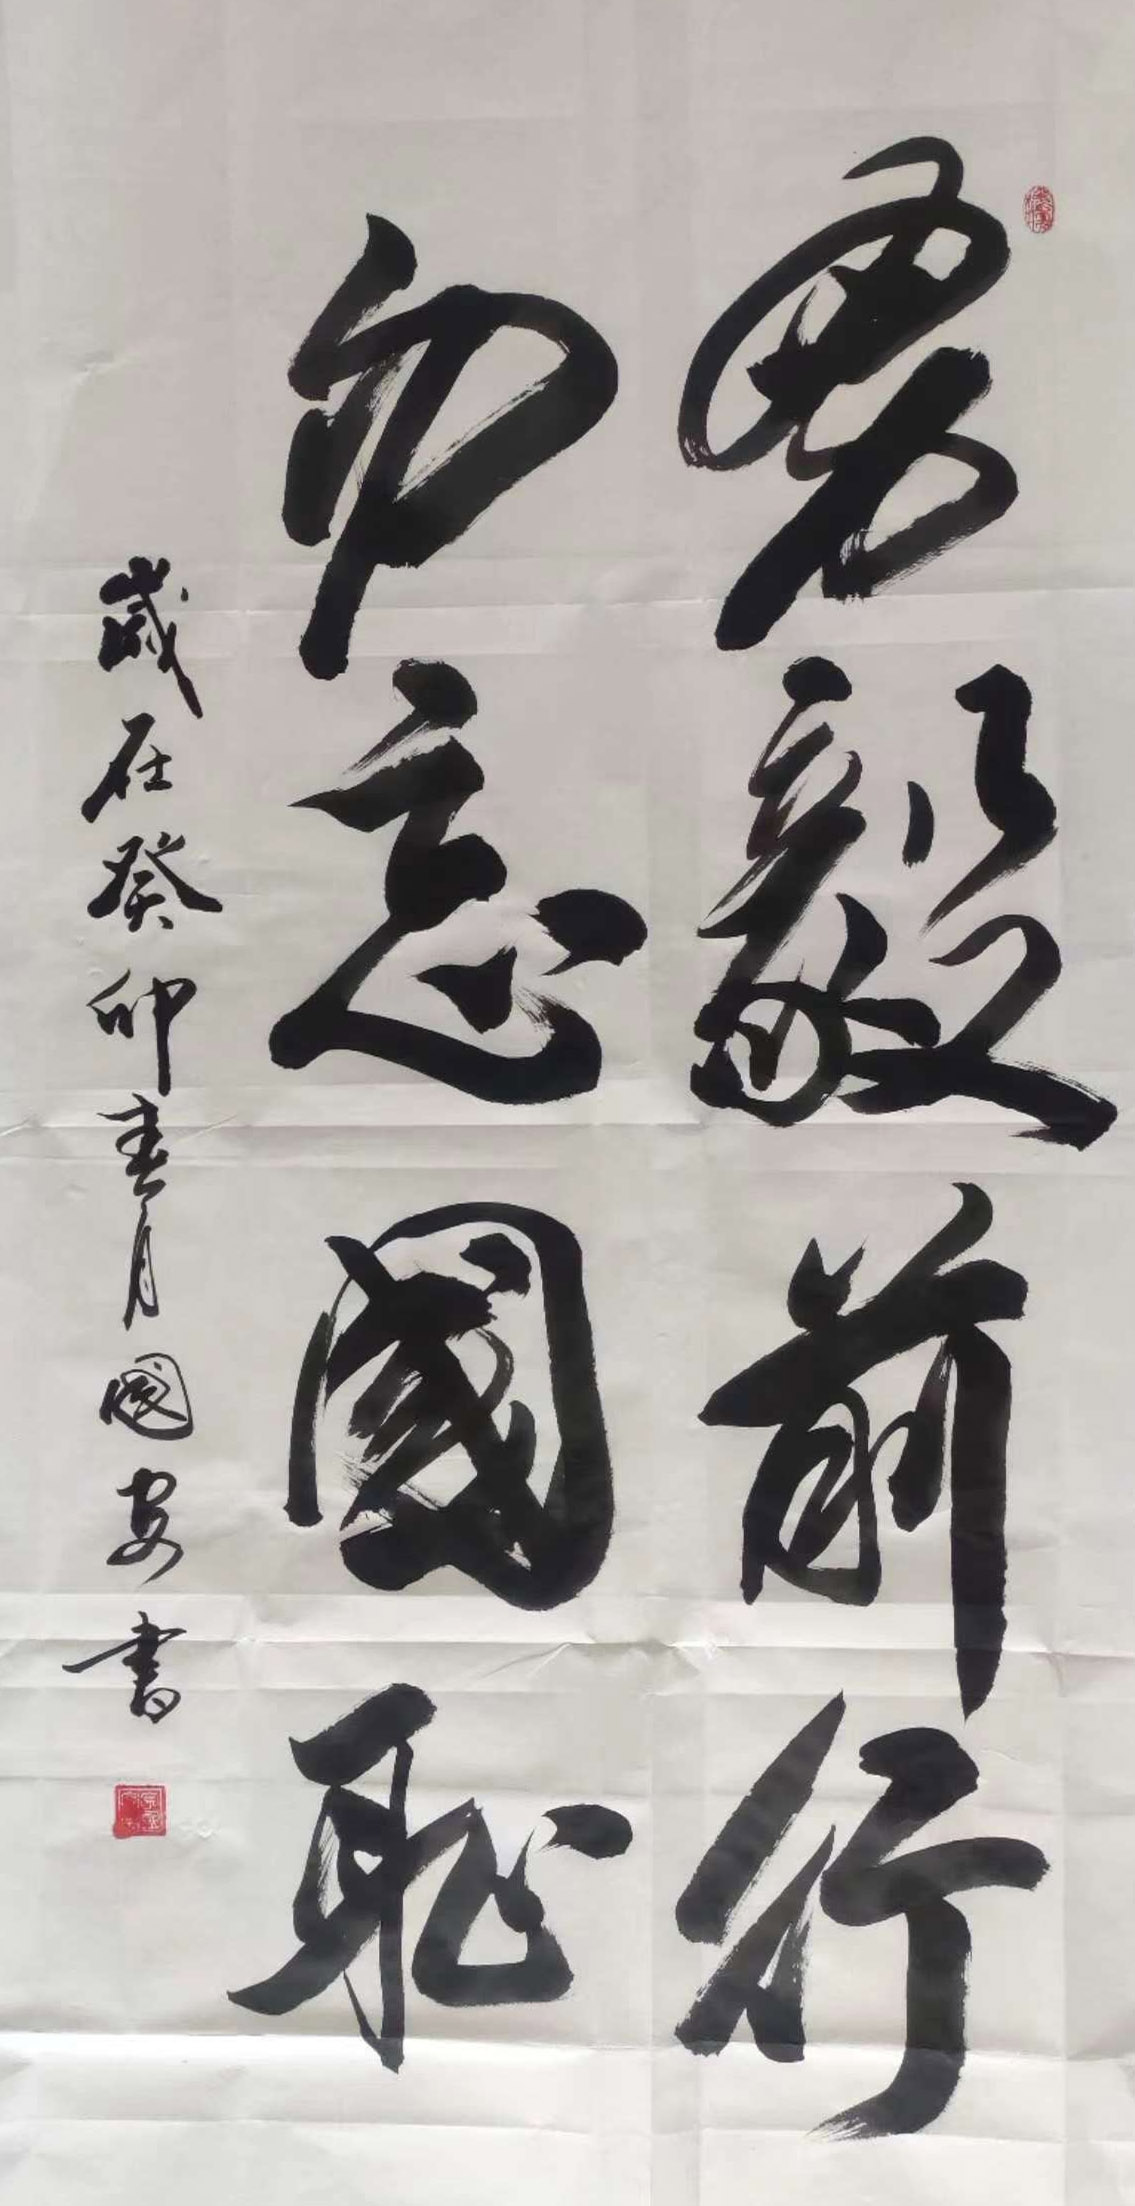 勇毅前行
勿忘國恥
歲在癸卯春月國安書